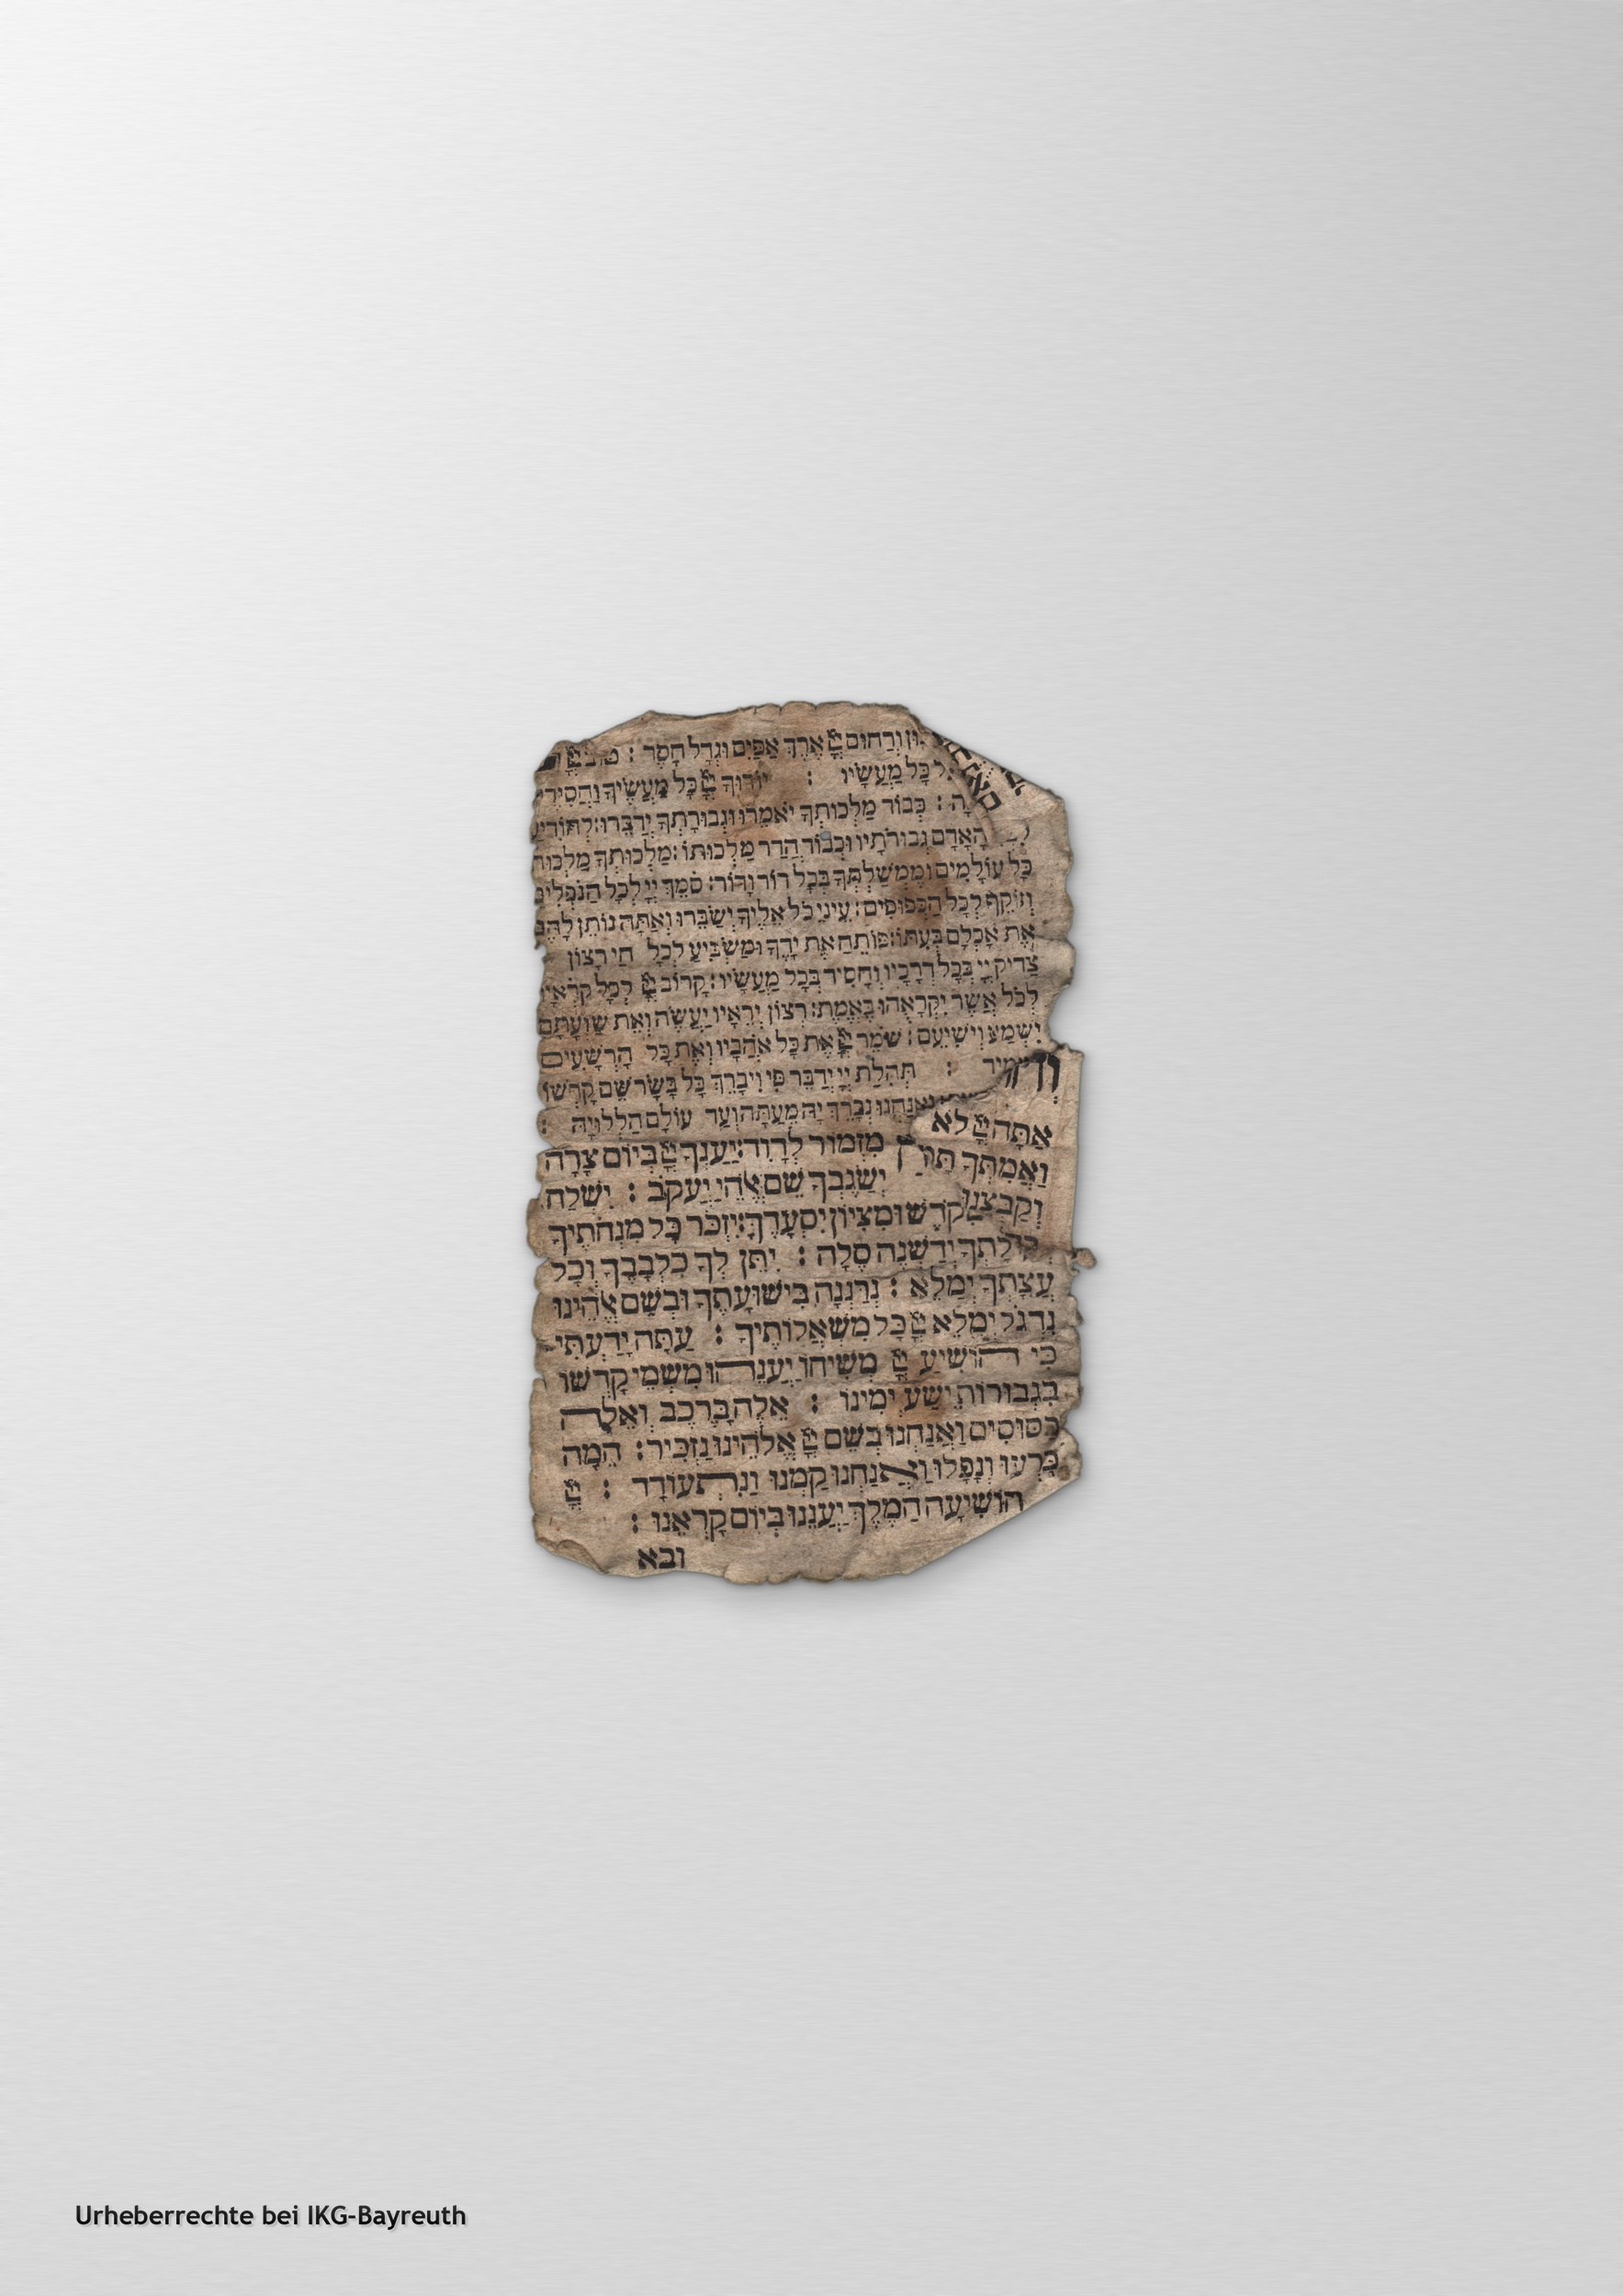 וְרַחוּם יְיָ אֶרֶךְ אַפַּיִם וּגְדָל חָסֶד :
לְכָל מַעֲשָׂיו : יוֹדוּךָ יְיָ כָּל מַעֲשֶׂיךָ וַחֲסִידֶי
כְּבוֹד מַלְכוּתְךָ יֹאמֵרוּ וּגְבוּרָתְךָ יְדַבֵּרוּ : לְהוֹדִיעַ
הָאָדָם גְּבוּרֹתָיו וּכְבוֹד הֲדַר מַלְכוּתוֹ : מַלְכוּתְךָ מַלְכוּת
כָּל עוֹלָמִים וּמֶמְשַׁלְתְּךָ בְּכָל דּוֹר וָדוֹר : סֹמֵךְ יְיָ לְכָל הַנֹּפְלִים
וְזוֹקֵף לְכָל הַכְּפוּפִים : עֵינֵי כֹל אֵלֶיךָ יְשַׂבֵּרוּ וְאַתָּה נוֹתֵן לָהֶם
אֶת אָכְלָם בְּעִתּוֹ : פּוֹתֵחַ אֶת יָדֶךָ וּמַשְׂבִּיעַ לְכָל חַי רָצוֹן
צַדִּיק יְיָ בְּכָל דְּרָכָיו וְחָסִיד בְּכָל מַעֲשָׂיו : קָרוֹב יְיָ לְכָל קֹרְאָיו
לְכֹל אֲשֶׁר יִקְרָאֻהוּ בֶאֱמֶת : רְצוֹן יְרֵאָיו יַעֲשֶׂה וְאֶת שַׁוְעָתָם
יִשְׁמַע וְיוֹשִׁיעֵם : שֹׁמֵר יְיָ אֶת כָּל אֹהֲבָיו וְאֶת כָּל הָרְשָׁעִים
תְּהִלַּת יְיָ יְדַבֶּר פִּי וִיבָרֵךְ כָּל בָּשָׂר שֵׁם קָדְשׁוֹ
וַאֲנַחְנוּ נְבָרֵךְ יָהּ מֵעַתָּה וְעַד עוֹלָם הַלְלוּיָהּ :
אַתָּה יְיָ לֹא
מִזְמוֹר לְדָוִד : יַעַנְךָ יְיָ בְּיוֹם צָרָה
וַאֲמִתְּךָ
יְשַׂגֶּבְךָ שֵׁם אֱלֹהֵי יַעֲקֹב : יִשְׁלַח
וְקַבְּצֵנוּ
וּמִצִּיּוֹן יִסְעָדֶךָּ : יִזְכֹּר כָּל מִנְחֹתֶיךָ
יְדַשְּׁנֶה סֶלָה : יִתֶּן לְךָ כִלְבָבֶךָ וְכָל
עֲצָתְךָ יְמַלֵּא : נְרַנְּנָה בִּישׁוּעָתֶךָ וּבְשֵׁם אֱלֹהֵינוּ
נִדְגֹּל יְמַלֵּא יְיָ כָּל מִשְׁאֲלוֹתֶיךָ : עַתָּה יָדַעְתִּי
כִּי הוֹשִׁיעַ יְיָ מְשִׁיחוֹ יַעֲנֵהוּ מִשְּׁמֵי קָדְשׁוֹ
בִּגְבוּרוֹת יֵשַׁע יְמִינוֹ : אֵלֶּה בָרֶכֶב וְאֵלֶּה
בַסּוּסִים וַאֲנַחְנוּ בְּשֵׁם יְיָ אֱלֹהֵינוּ נַזְכִּיר : הֵמָּה
כָּרְעוּ וְנָפָלוּ וַאֲנַחְנוּ קַמְנוּ וַנִּתְעוֹדָד : יְיָ
הוֹשִׁיעָה הַמֶּלֶךְ יַעֲנֵנוּ בְיוֹם קָרְאֵנוּ :
ובא
Urheberrechte bei IKG-Bayreuth